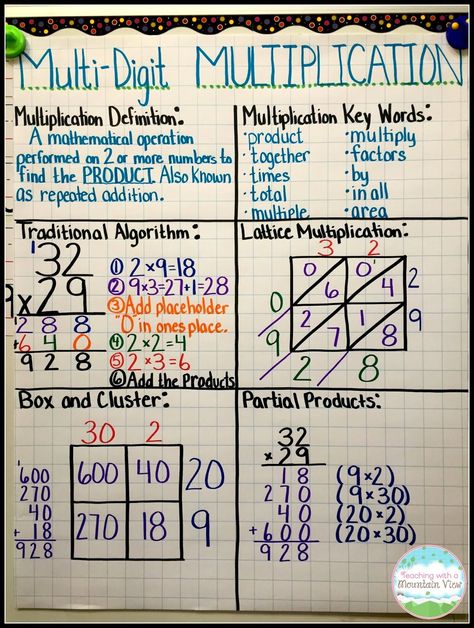 Multi-Digit MULTIPLICATION
Multiplication Definition:
A mathematical operation
performed on 2 or more numbers to
find the PRODUCT. Also known
as repeated addition.
Multiplication Key Words:
·product ·multiply
·together ·factors
·times ·by
·total ·in all
·multiple ·area
Traditional Algorithm:
1
32
9 x 29
1 2 8 8
+ 6 4 0
9 2 8
① 2×9=18
② 9×3=27+1=28
③ Add placeholder
"0" in ones place.
④ 2×2=4
⑤ 2×3=6
⑥ Add the Products
Lattice Multiplication:
3 2
0 6 0 4 2
0
2 7 1 8 9
9
2 8
Box and Cluster:
30 2
600 40 20
270 18 9
1
600
270
40
+ 18
928
Partial Products:
32
x 29
18 (9×2)
270 (9×30)
40 (20×2)
+600 (20×30)
928
Teaching with a
Mountain View